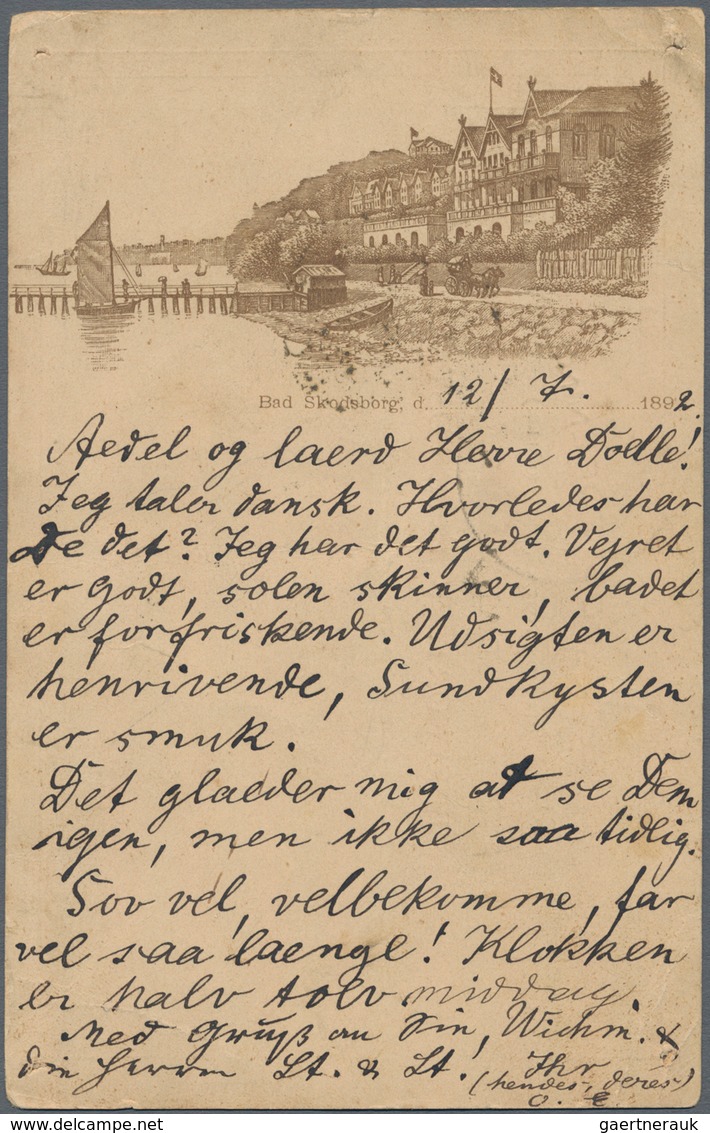 Bad Skodsborg, d. 12/7. 1892.
Aedel og laerd Herre Doelle!
Jeg taler dansk. Hvorledes har
De det? Jeg har det godt. Vejret
er godt, solen skinner, badet
er forfriskende. Udsigten er
henrivende, Sundkysten
er smuk.
Det glaeder mig at se Dem
igen, men ikke saa tidlig.
Sov vel, velbekomme, far
vel saa laenge! Klokken
er halv tolv middag.
Med Gruß an Sin, Wichm. &
die Herrn Lt. & Lt. Ihr
(hendes, deres)
gaertnerauk